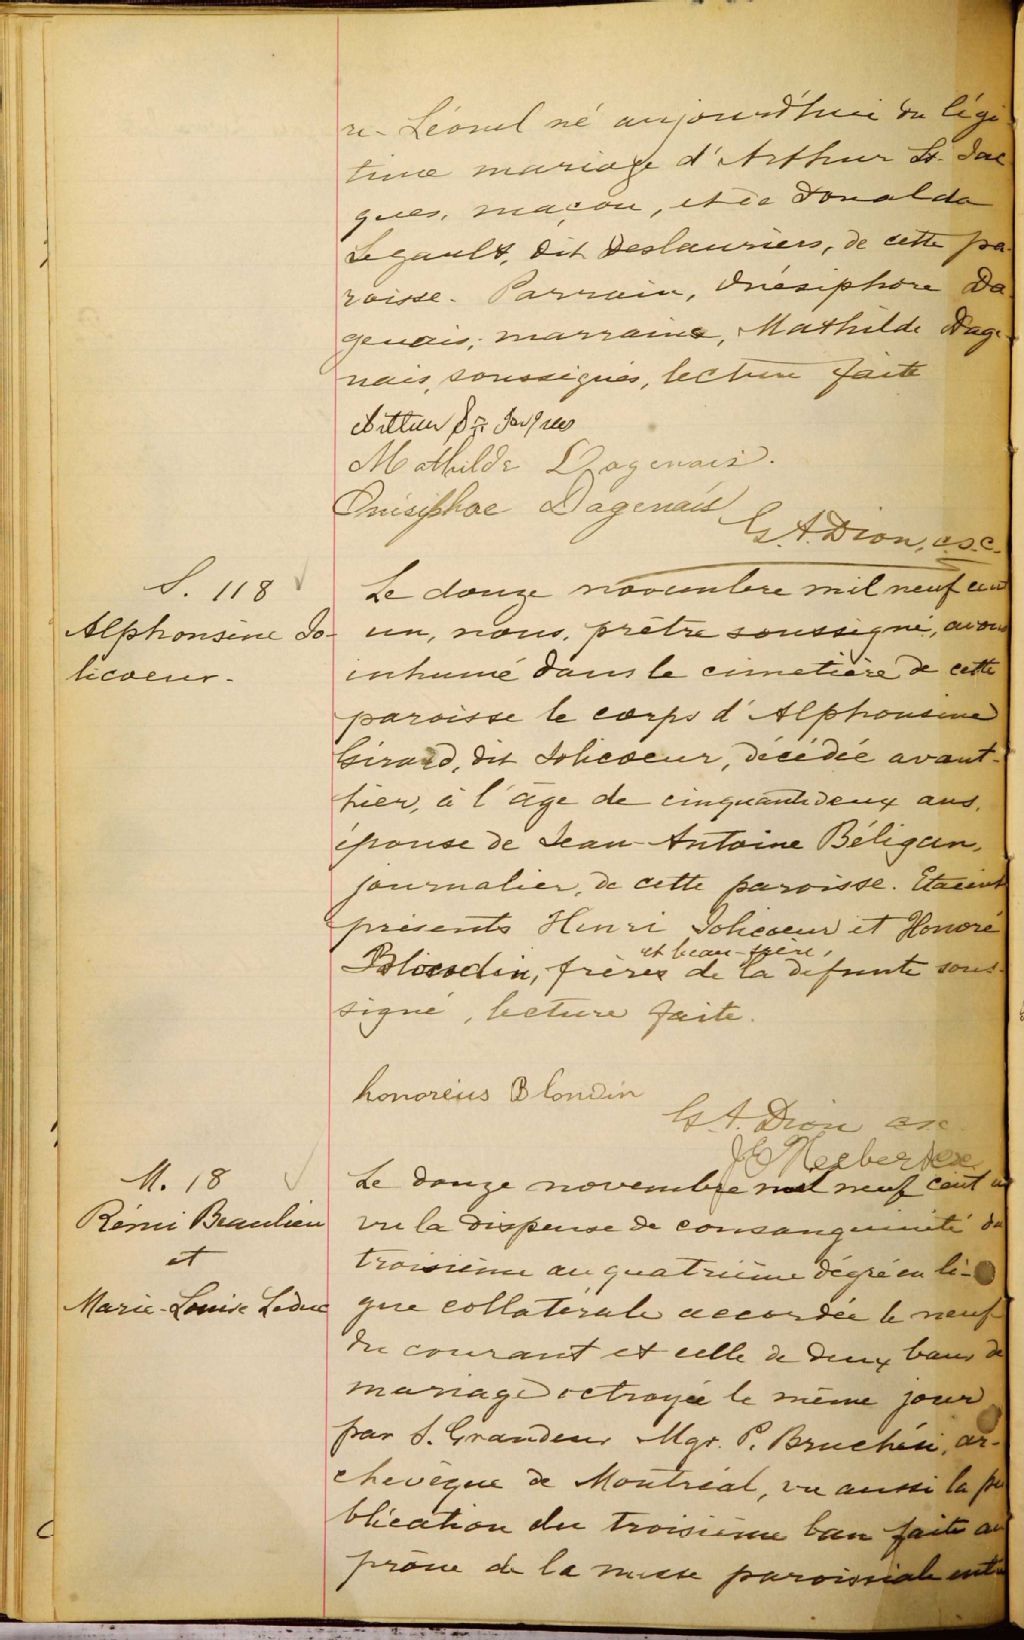 re-Léonel né aujourd'hui du légi
time mariage d'Arthur St-Jac
ques, maçon, et de Donalda
Legault, dit Deslauriers, de cette pa-
roisse. Parrain, Onésiphore Da-
genais; marraine, Mathilde Dage-
nais, soussignés, lecture faite
Arthur St Jacques
Mathilde Dagenais.
Onisiphoe Dagenais
G. A. Dion, c.s.c.
S. 118
Alphonsine Jo-
licoeur-
Le douze novembre mil neuf cent
un, nous, prêtre soussigné, avons
inhumé dans le cimetière de cette
paroisse le corps d'Alphonsine
Girard, dit Jolicoeur, décédée avant-
hier, à l'âge de cinquante deux ans,
épouse de Jean-Antoine Béligan,
journalier, de cette paroisse. Etaient
présents Henri Jolicoeur et Honoré
et beau-frère,
Blondin, frère de la défunte sous-
signé, lecture faite.
honoreius Blondin
G. A. Dion csc.
M. 18
Rémi Beaulieu
et
Marie-Louise Leduc
Le douze novembre mil neuf cent un
vu la dispense de consanguinité du
troisième au quatrième dégré en li-
gne collatérale accordée le neuf
du courant et celle de deux bans de
mariage octroyée le même jour
par S. Grandeur Mgr. P. Bruchési, ar-
chevêque de Montréal, vu aussi la pu
blication du troisième ban faite au
prône de la messe paroissiale entre